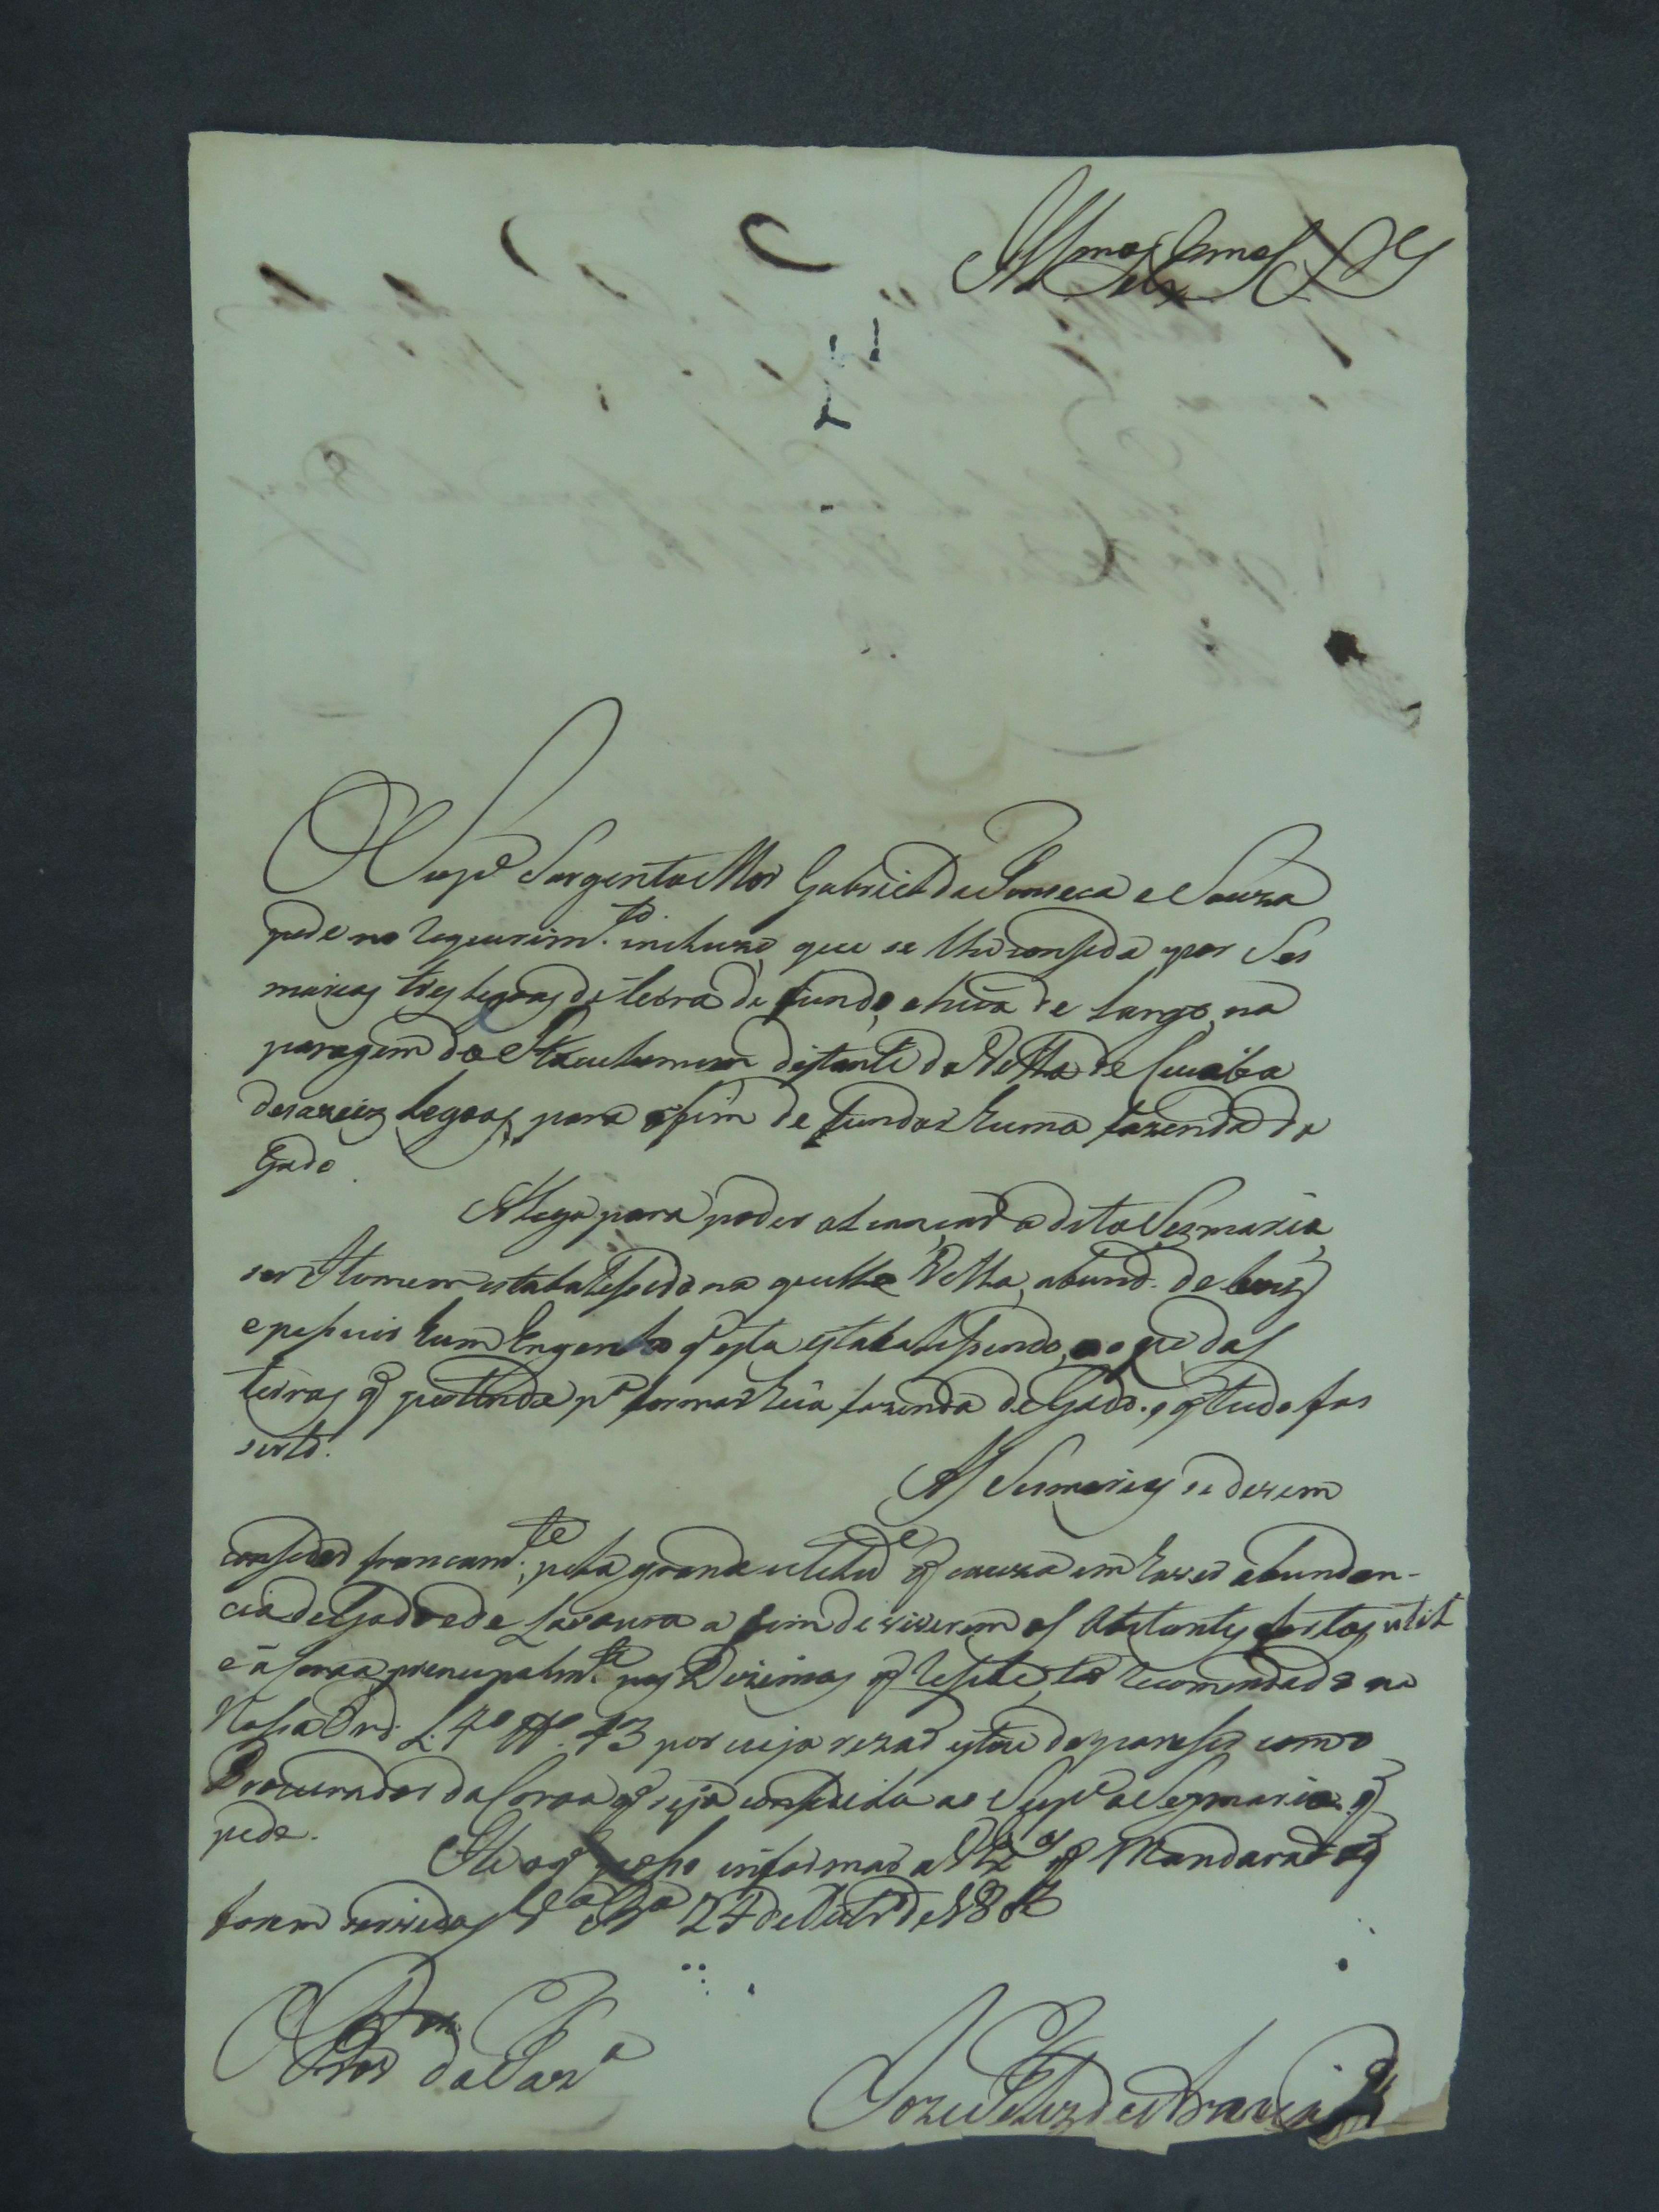 Illmos e Exmos Srs
O Supe Sargento Mor Gabriel da Fonseca e Souza
pede no requerimto. incluzo, que se lhe conseda por Ses
marias tres legoas de terra de fundo, e huã de largo, na
paragem do distante da Villa de Cuiaba
dezaseiz legoas, para o fim de fundar huma fazenda de
Gado.
Alega para poder alcansar a dita Sezmaria
ser Homem estabalessido na quella Villa, abund. de bens
e pessuir hum Engenho q esta estabalessendo, e o que das
terras q pertende pa formar huã fazenda de Gado. tudo fas
serto.
As Sesmarias se devem
conseder francamte., pela grande utelide q cauza em haver abundan-
cia de Gado e de Lavoura a fim de viverem os Abitantes fartos, util
e a Coroa, prencipalmte. nos Dizimos q resebe, tão recomendado na
Nossa Ord. L. 4o tto. 43 por cuja rezaõ estou de pareser como
Procurador da Coroa q seja consedida ao Supe a Sezmaria q
pede.
He o q posso informar a VEas q Mandaraõ o q
forem servidos Va Ba 24 de Outro de 18
O Dor
Pror da Fazda
Joze da Silva de Araujo